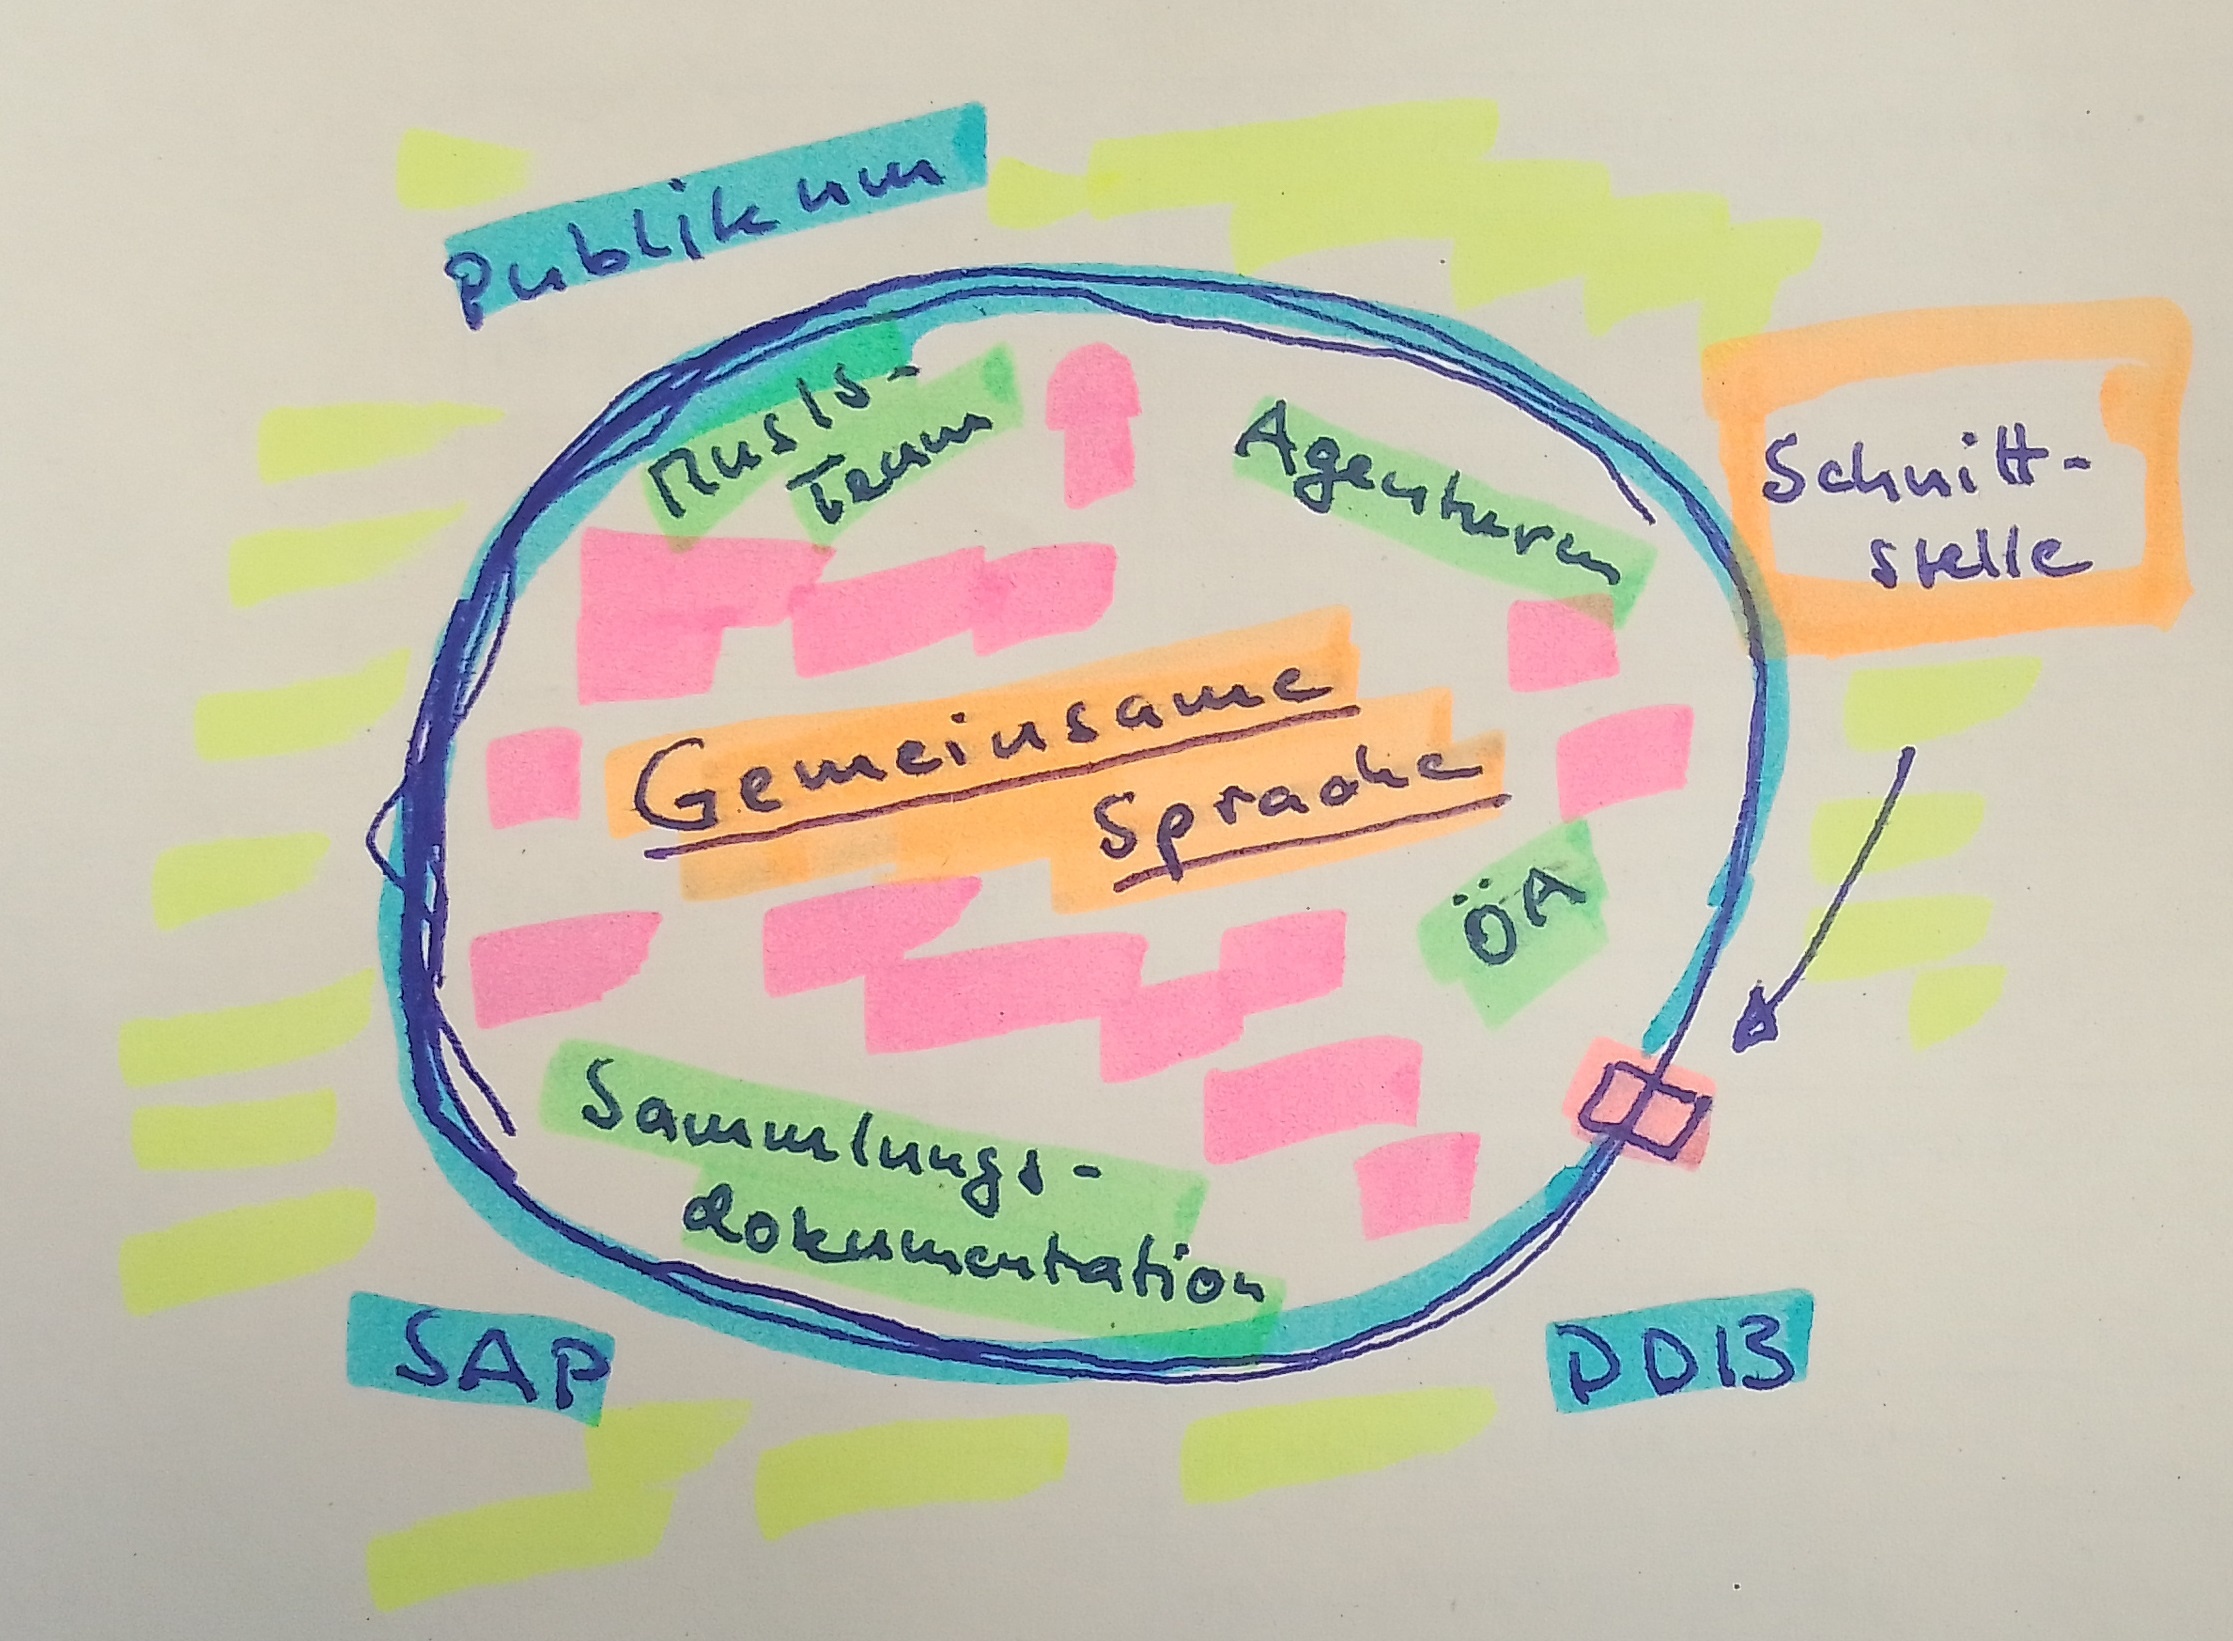 Publikum
MusIS-
Team
Agenturen
Schnitt-
stelle
Gemeinsame
Sprache
ÖA
Sammlungs-
dokumentation
SAP
DDB